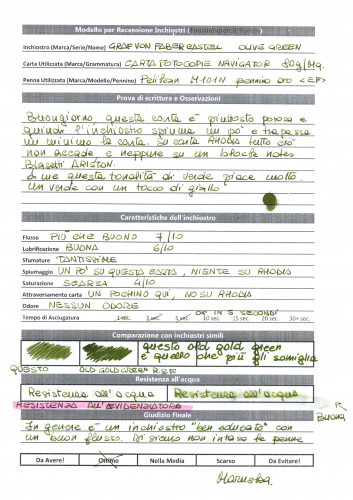 Modello per Recensione Inchiostri (Fountainpen.it Forum)
Inchiostro (Marca/Serie/Nome) GRAF VON FABER CASTELL OLIVE GREEN
Carta Utilizzata (Marca/Grammatura) CARTA FOTOCOPIE NAVIGATOR 80g/Mq.
Penna Utilizzata (Marca/Modello/Pennino) Pelikan M101N pennino oro <EF>
Prova di scrittura e Osservazioni
Buongiorno, questa carta è piuttosto porosa e
quindi l'inchiostro spiuma un po' e trapassa
un minimo la carta. Su carta RHODIA tutto ciò
non accade e neppure su un blocco notes
Blasetti ARISTON.
A me questa tonalità di verde piace molto.
Un verde con un tocco di giallo
Caratteristiche dell'inchiostro
Flusso PIÙ CHE BUONO 7/10
Lubrificazione BUONA 6/10
Sfumature TANTISSIME
Spiumaggio UN PO' SU QUESTA CARTA, NIENTE SU RHODIA
Saturazione SCARSA 4/10
Attraversamento carta UN POCHINO QUI, NO SU RHODIA
Odore NESSUN ODORE
OK IN 5 SECONDI
Tempo di Asciugatura 1 sec. 3 sec. 5 sec. 10 sec. 15 sec. 20 sec. 30+ sec.
Comparazione con inchiostri simili
questo old gold green
è quello che più gli somiglia
QUESTO OLD GOLD GREEN R.&R
Resistenza all'acqua
Resistenza all'acqua Resistenza all'acqua
RESISTENZA ALL'EVIDENZIATORE
BUONA
Giudizio Finale
In genere è un inchiostro "ben educato" con
un buon flusso. Di sicuro non intasa le penne
Da Avere! Ottimo Nella Media Scarso Da Evitare!